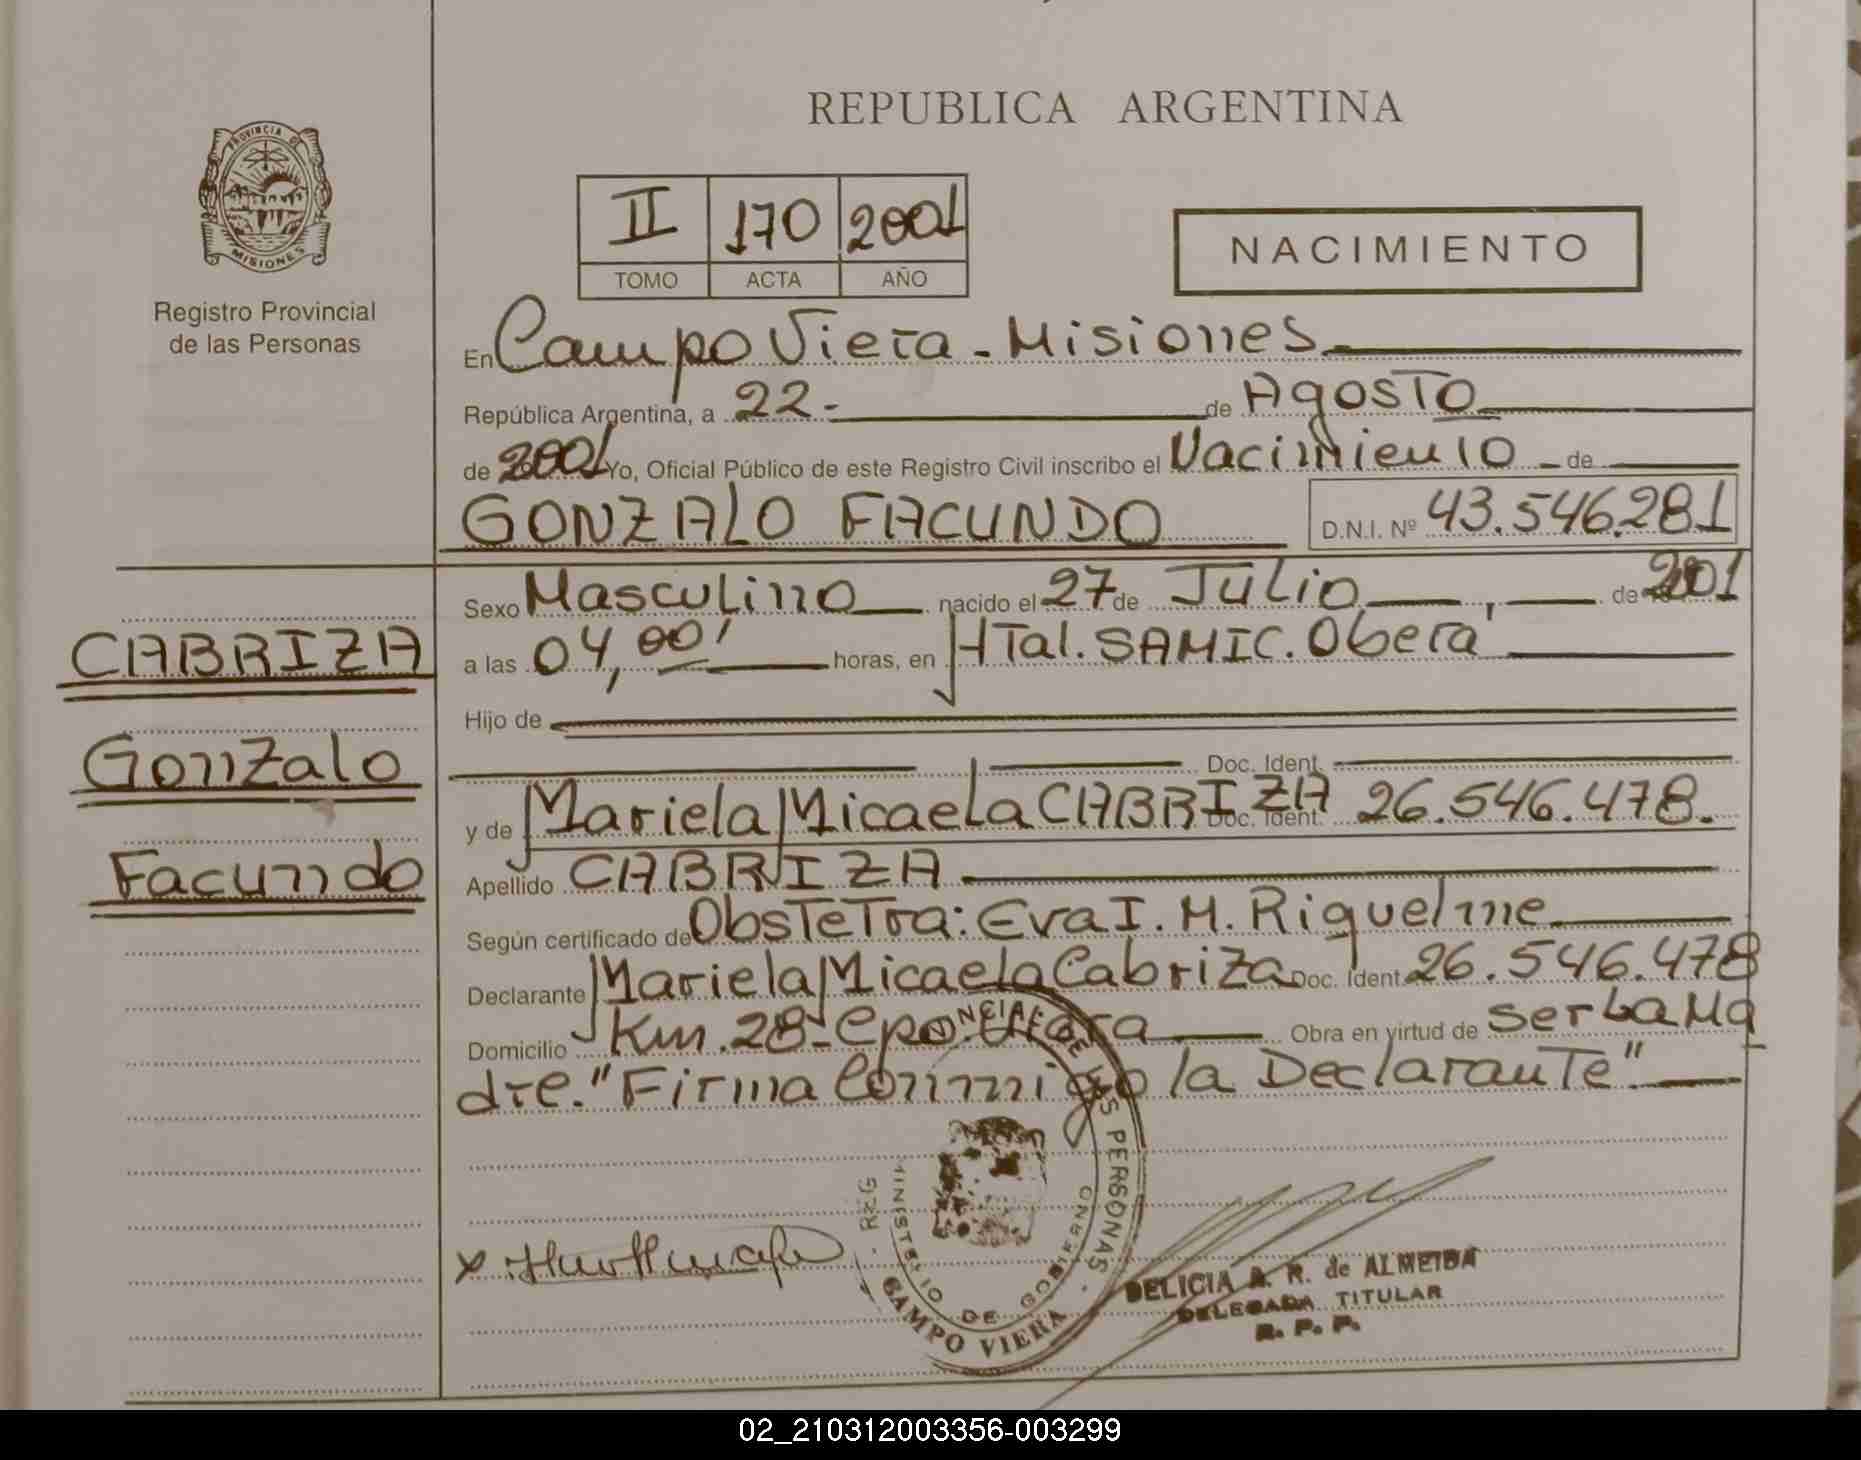 REPUBLICA ARGENTINA
PROVINCIA DE
MISIONES
Registro Provincial
de las Personas
II 170 2001
TOMO ACTA AÑO
NACIMIENTO
En Campo Viera - Misiones
República Argentina, a 22- de Agosto
de 2001 Yo, Oficial Público de este Registro Civil inscribo el Nacimiento - de
GONZALO FACUNDO D.N.I. Nº 43.546.281
Sexo Masculino nacido el 27 de Julio, de 2001
CABRIZA
a las 04,00' horas, en HTal. SAMIC. Oberá
Hijo de
Gonzalo
Doc. Ident.
y de Mariela Micaela CABRIZA Doc. Ident. 26.546.478.
Facundo
Apellido CABRIZA
Según certificado de ObsTeTra: Eva I. M. Riquelme
Declarante Mariela Micaela Cabriza Doc. Ident. 26.546.478
Domicilio Km. 28- Cpo. Viera Obra en virtud de ser La Ma
dre. "Firma Conmigo la DeclaranTe"
REG PERSONAS
MINISTERIO DE GOBIERNO
CAMPO VIERA
DELICIA A. R. de ALMEIDA
DELEGADA TITULAR
R. P. P.
02_210312003356-003299